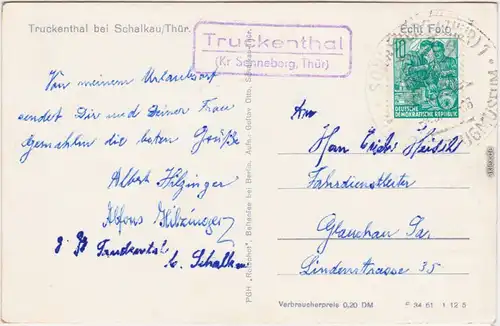 Truckenthal bei Schalkau/Thür.
Truckenthal
(Kr Sonneberg, Thür)
Echt Foto
10
DEUTSCHE
DEMOKRATISCHE REPUBLIK
Von meinem Urlaubsort
sendet Dir und Deiner Frau
Gemahlin die besten Grüße
Albert Hilzinger
Alfons Hilzinger
z. Zt Truckental
b. Schalkau
An
Herrn Erich
Fahrdienstleiter
Glauchau Sa.
Lindenstrasse 35
PGH "Rotophot", Bestensee bei Berlin. Aufn.: Gustav Otto, Schalkau-Thür.
Verbraucherpreis 0,20 DM
P 34 61 1 12 5